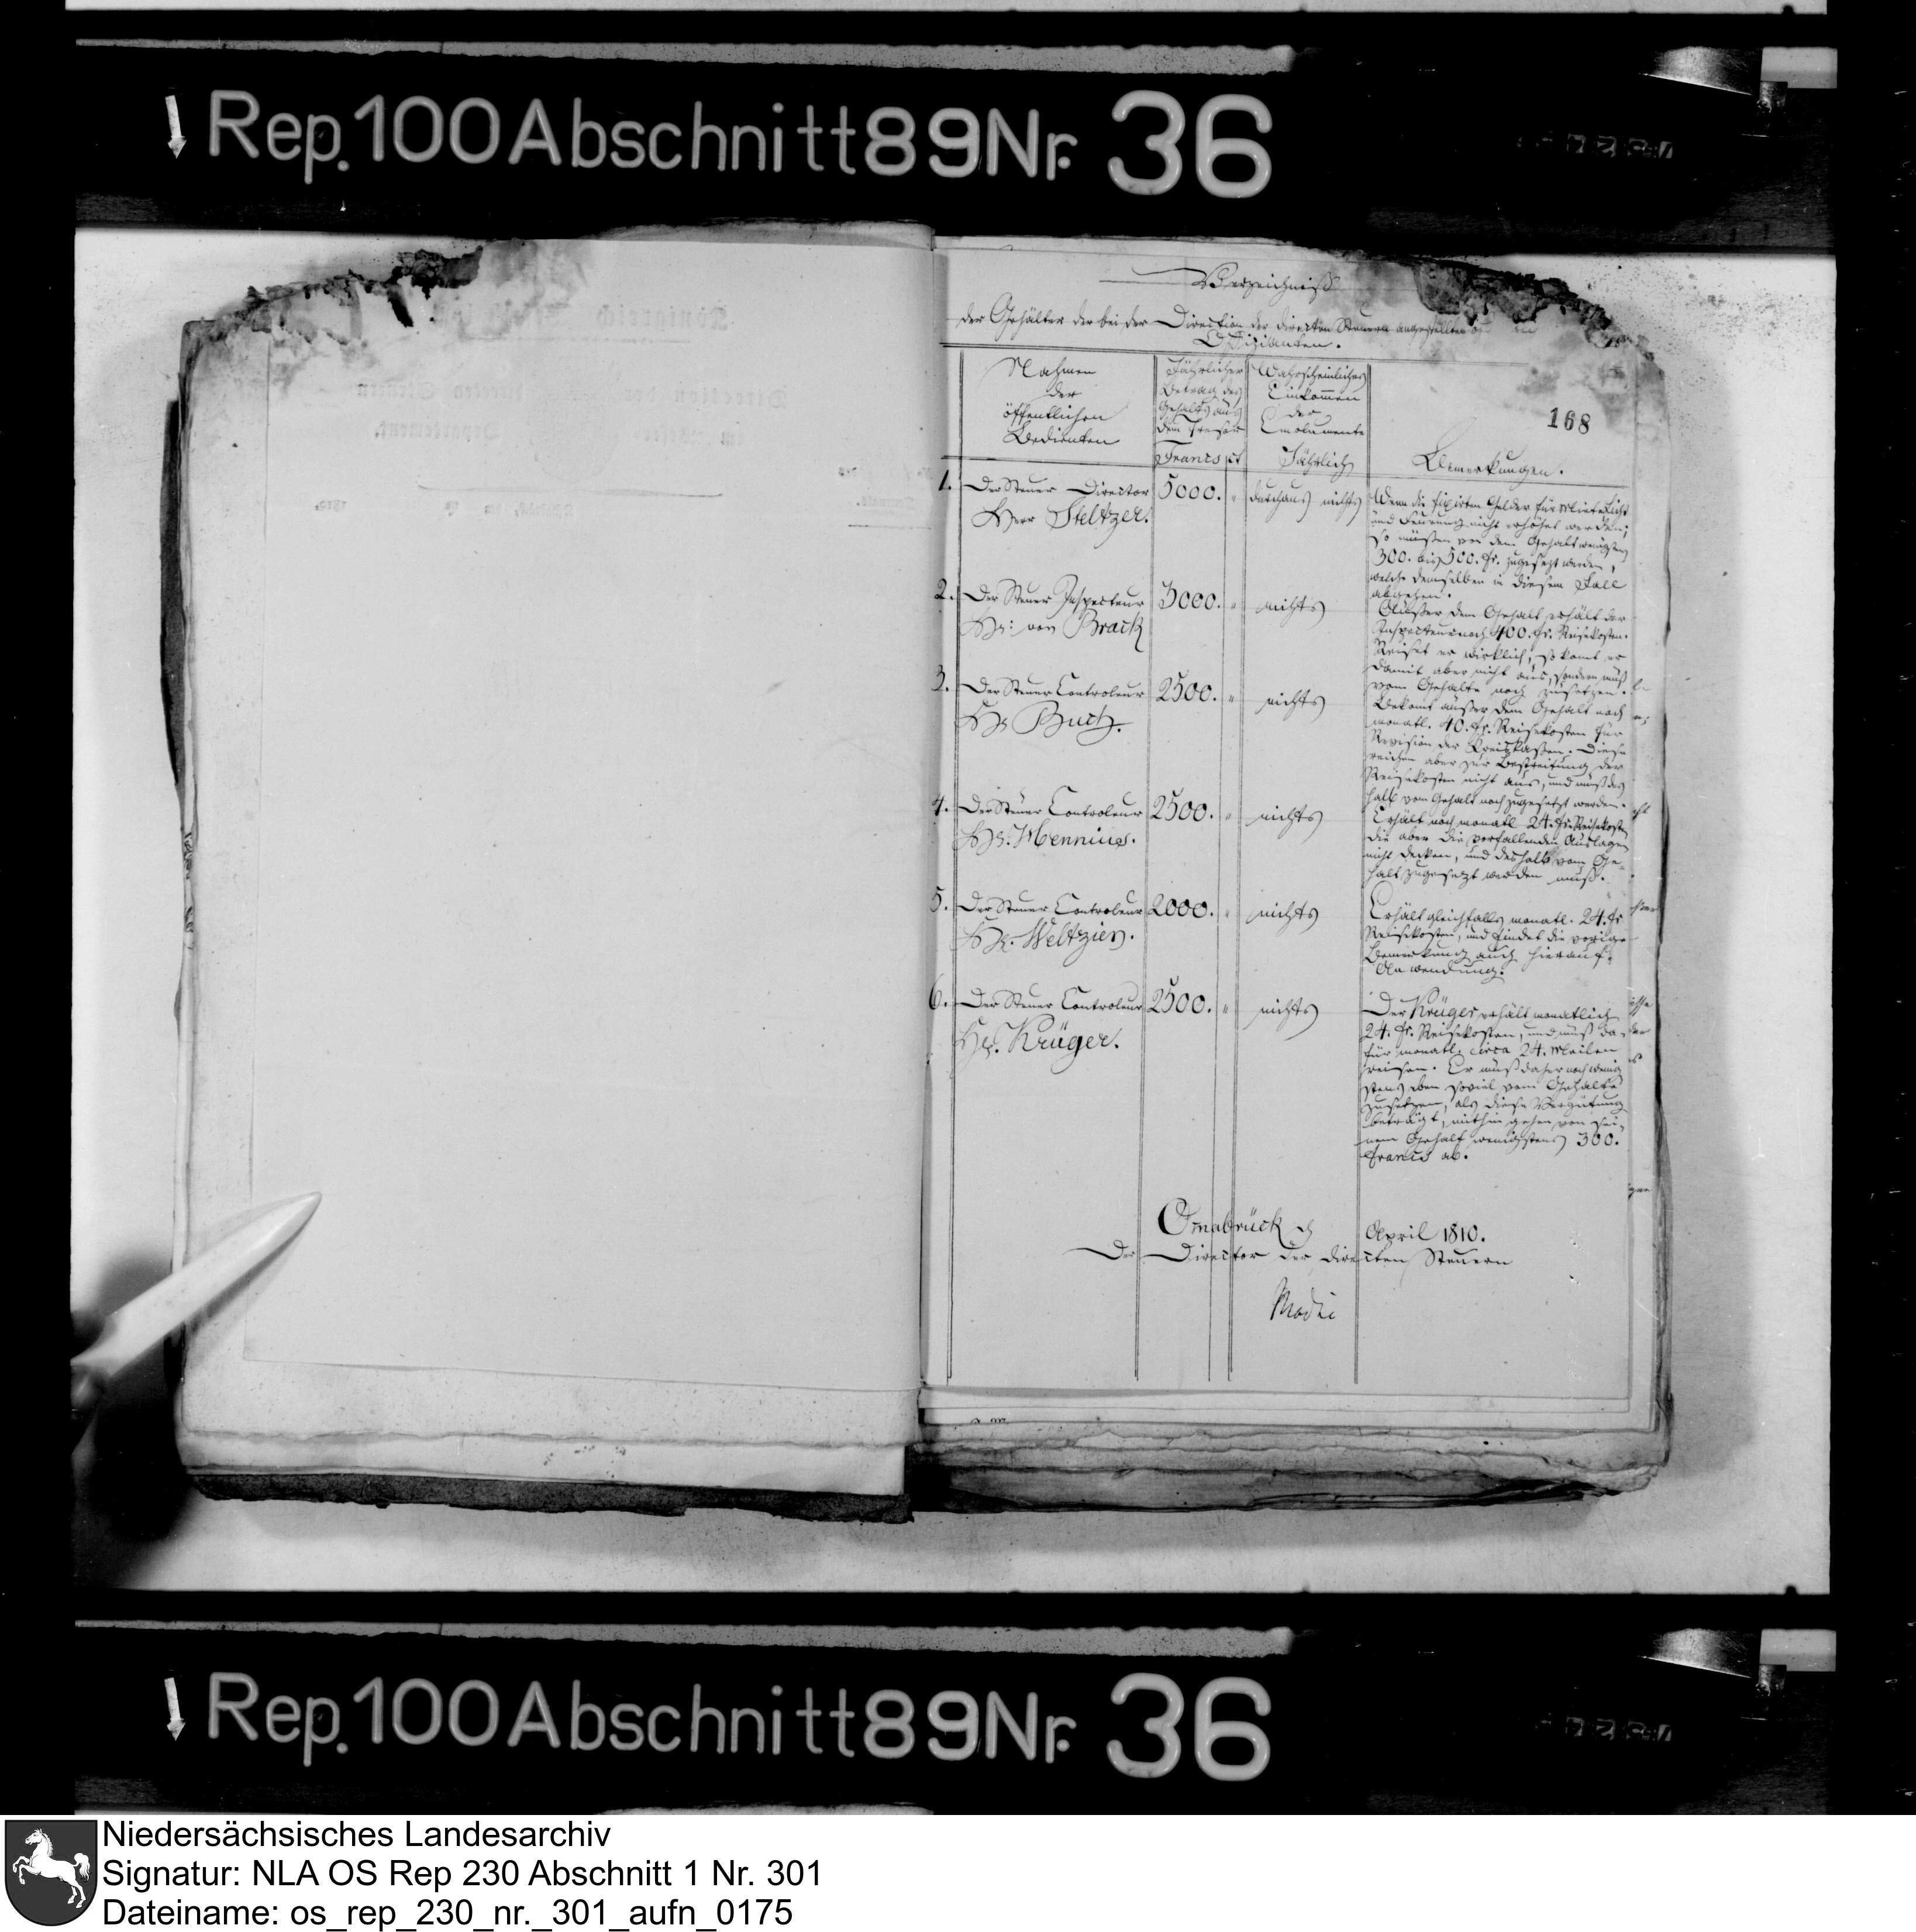 Rep. 100 Abschnitt 89 Nr. 36
Verzeichniß
der Gehälter der bei der Direction der directen Steuern angestellten
Offizianten.
Nahmen
der
öffentlichen
Bedienten
Jährlicher
Betrag des
Gehalts aus
dem Tresor
Francs ct
Wahrscheinliches
Einkommen
der
Emolumente
Jährlich
168
Bemerkungen.
1. Der Steuer Director
Herr Steltzer.
5000. "
durchaus nichts
Wenn die fixirten Gelder für Miethe, Licht
und Feuerung nicht erhöhet werden,
so müßen von dem Gehalt wenigstens
300. bis 500. fr. zugesezt werden,
welche demselben in diesem Fall
abgehen.
2. Der Steuer Inspecteur
Hr: von Brack
3000. "
nichts
Außer dem Gehalt erhält der
Inspecteur noch 400. fr. Reisekosten.
Reiset er wirklich, so komt er
damit aber nicht aus, sondern muß
vom Gehalte noch zusetzen.
3. Der Steuer Controleur
Hr Butz.
2500. "
nichts
Bekomt außer dem Gehalt noch
monatl. 40. fr. Reisekosten für
Revision der Kreiskaßen. Diese
reichen aber zur Bestreitung der
Reisekosten nicht aus, und muß des
halb vom Gehalt noch zugesetzt werden.
4. Der Steuer Controleur
Hr. Mennius.
2500. "
nichts
Erhält noch monatl. 24. fr. Reisekosten
die aber die vorfallenden Auslagen
nicht decken, und deshalb vom Ge-
halt zugesetzt werden muß.
5. Der Steuer Controleur
Hr. Weltzien.
2000. "
nichts
Erhält gleichfalls monatl. 24. fr
Reisekosten, und findet die vorige
Bemerkung auch hierauf
Anwendung.
6. Der Steuer Controleur
Hr. Krüger.
2500. "
nichts
Der Krüger erhält monatlich
24. fr. Reisekosten, und muß da-
für monatl. circa 24. Meilen
reisen. Er muß daher noch wenig
stens eben soviel vom Gehalte
zusetzen, als diese Vergütung
beträgt, mithin gehen von sei-
nem Gehalt wenigstens 300.
francs ab.
Osnabrück d April 1810.
Der Director der directen Steuern
Rep. 100 Abschnitt 89 Nr. 36
Niedersächsisches Landesarchiv
Signatur: NLA OS Rep 230 Abschnitt 1 Nr. 301
Dateiname: os_rep_230_nr._301_aufn_0175